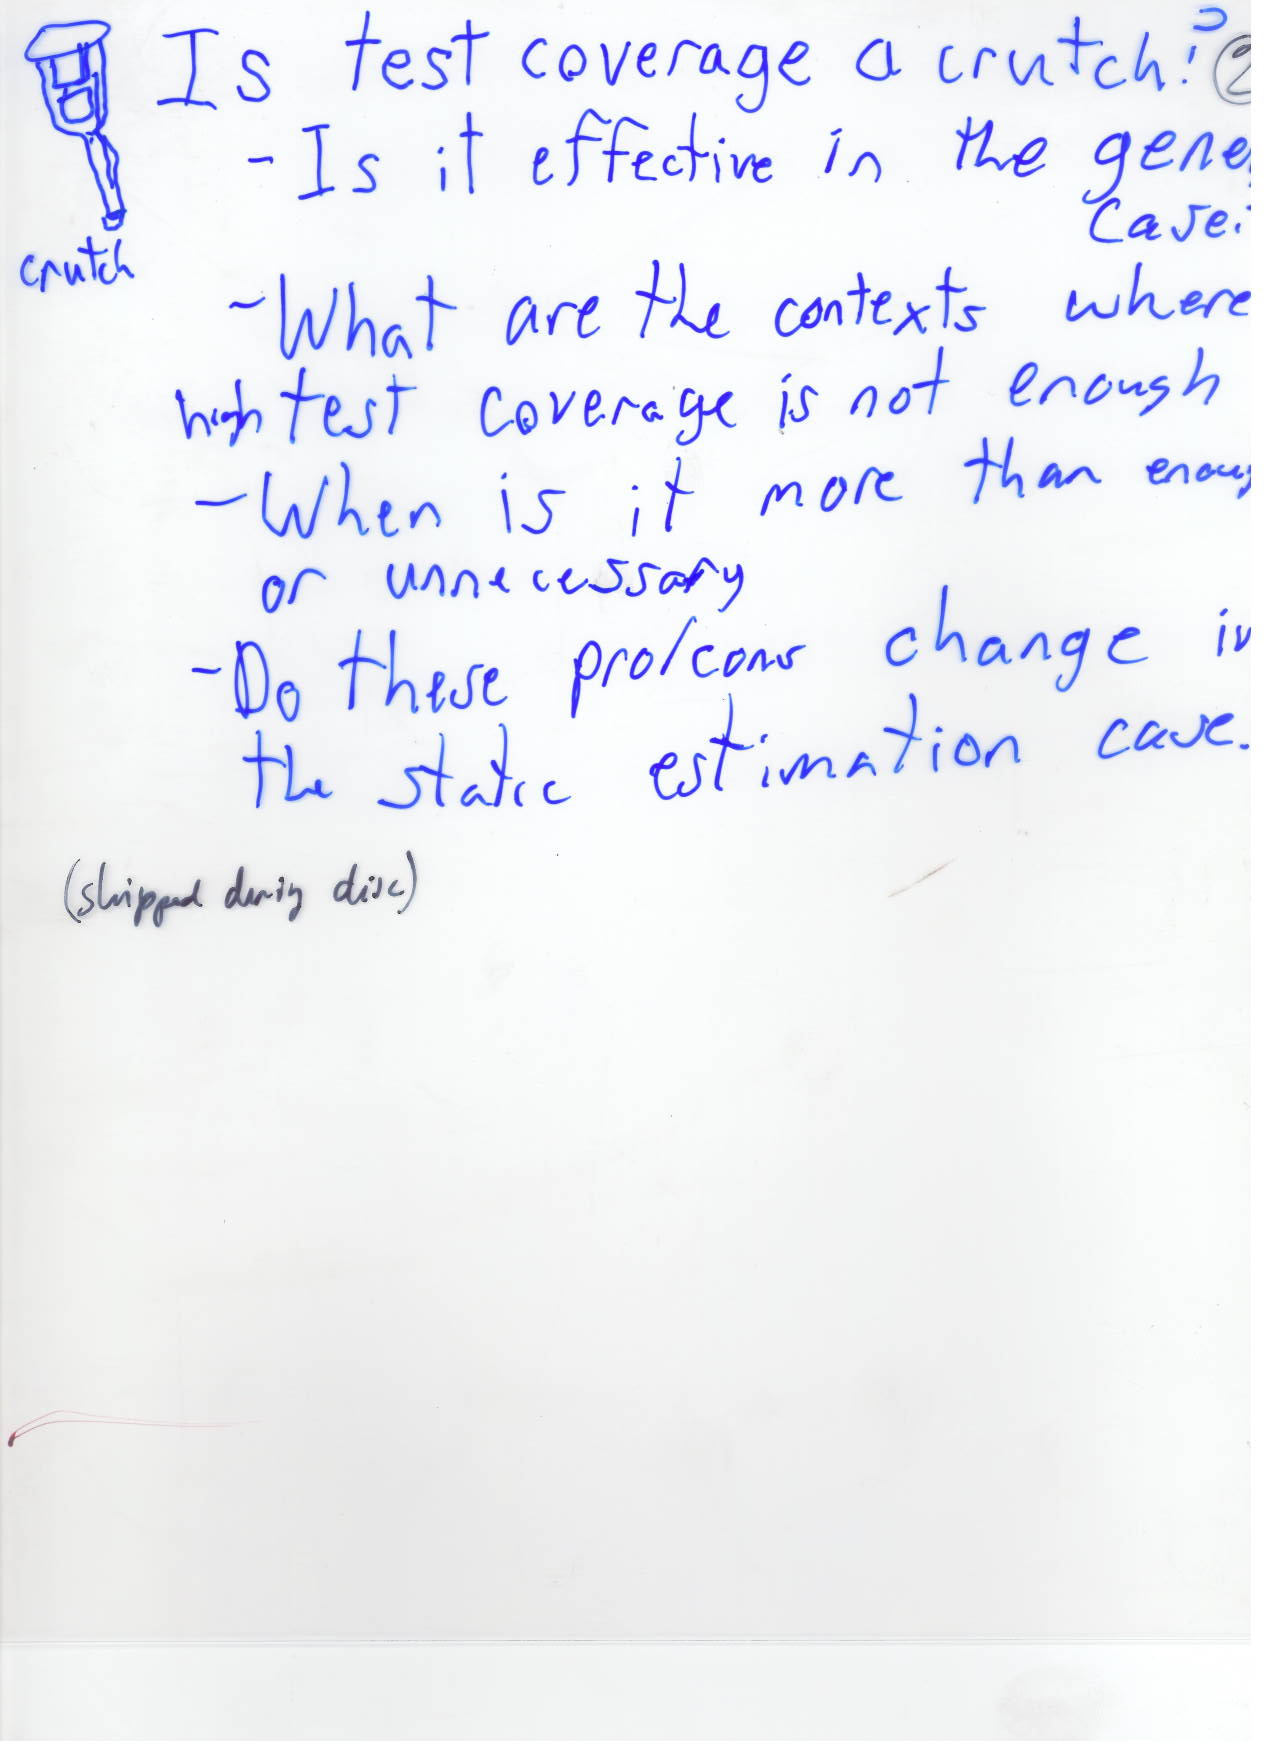 Is test coverage a crutch? 2
- Is it effective in the gene
case?
crutch
- What are the contexts where
high test coverage is not enough
- When is it more than enoug
or unnecessary
- Do these pro/cons change in
the static estimation case.
(skipped during disc)